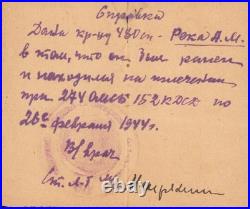 Справка
Дана кр-цу 480 сп - Река А.М.
в том, что он был ранен
и находился на излечении
при 274 ОМСБ 152 КДСК по
26е февраля 1944 г.
В/врач
Ст. л-т м/с